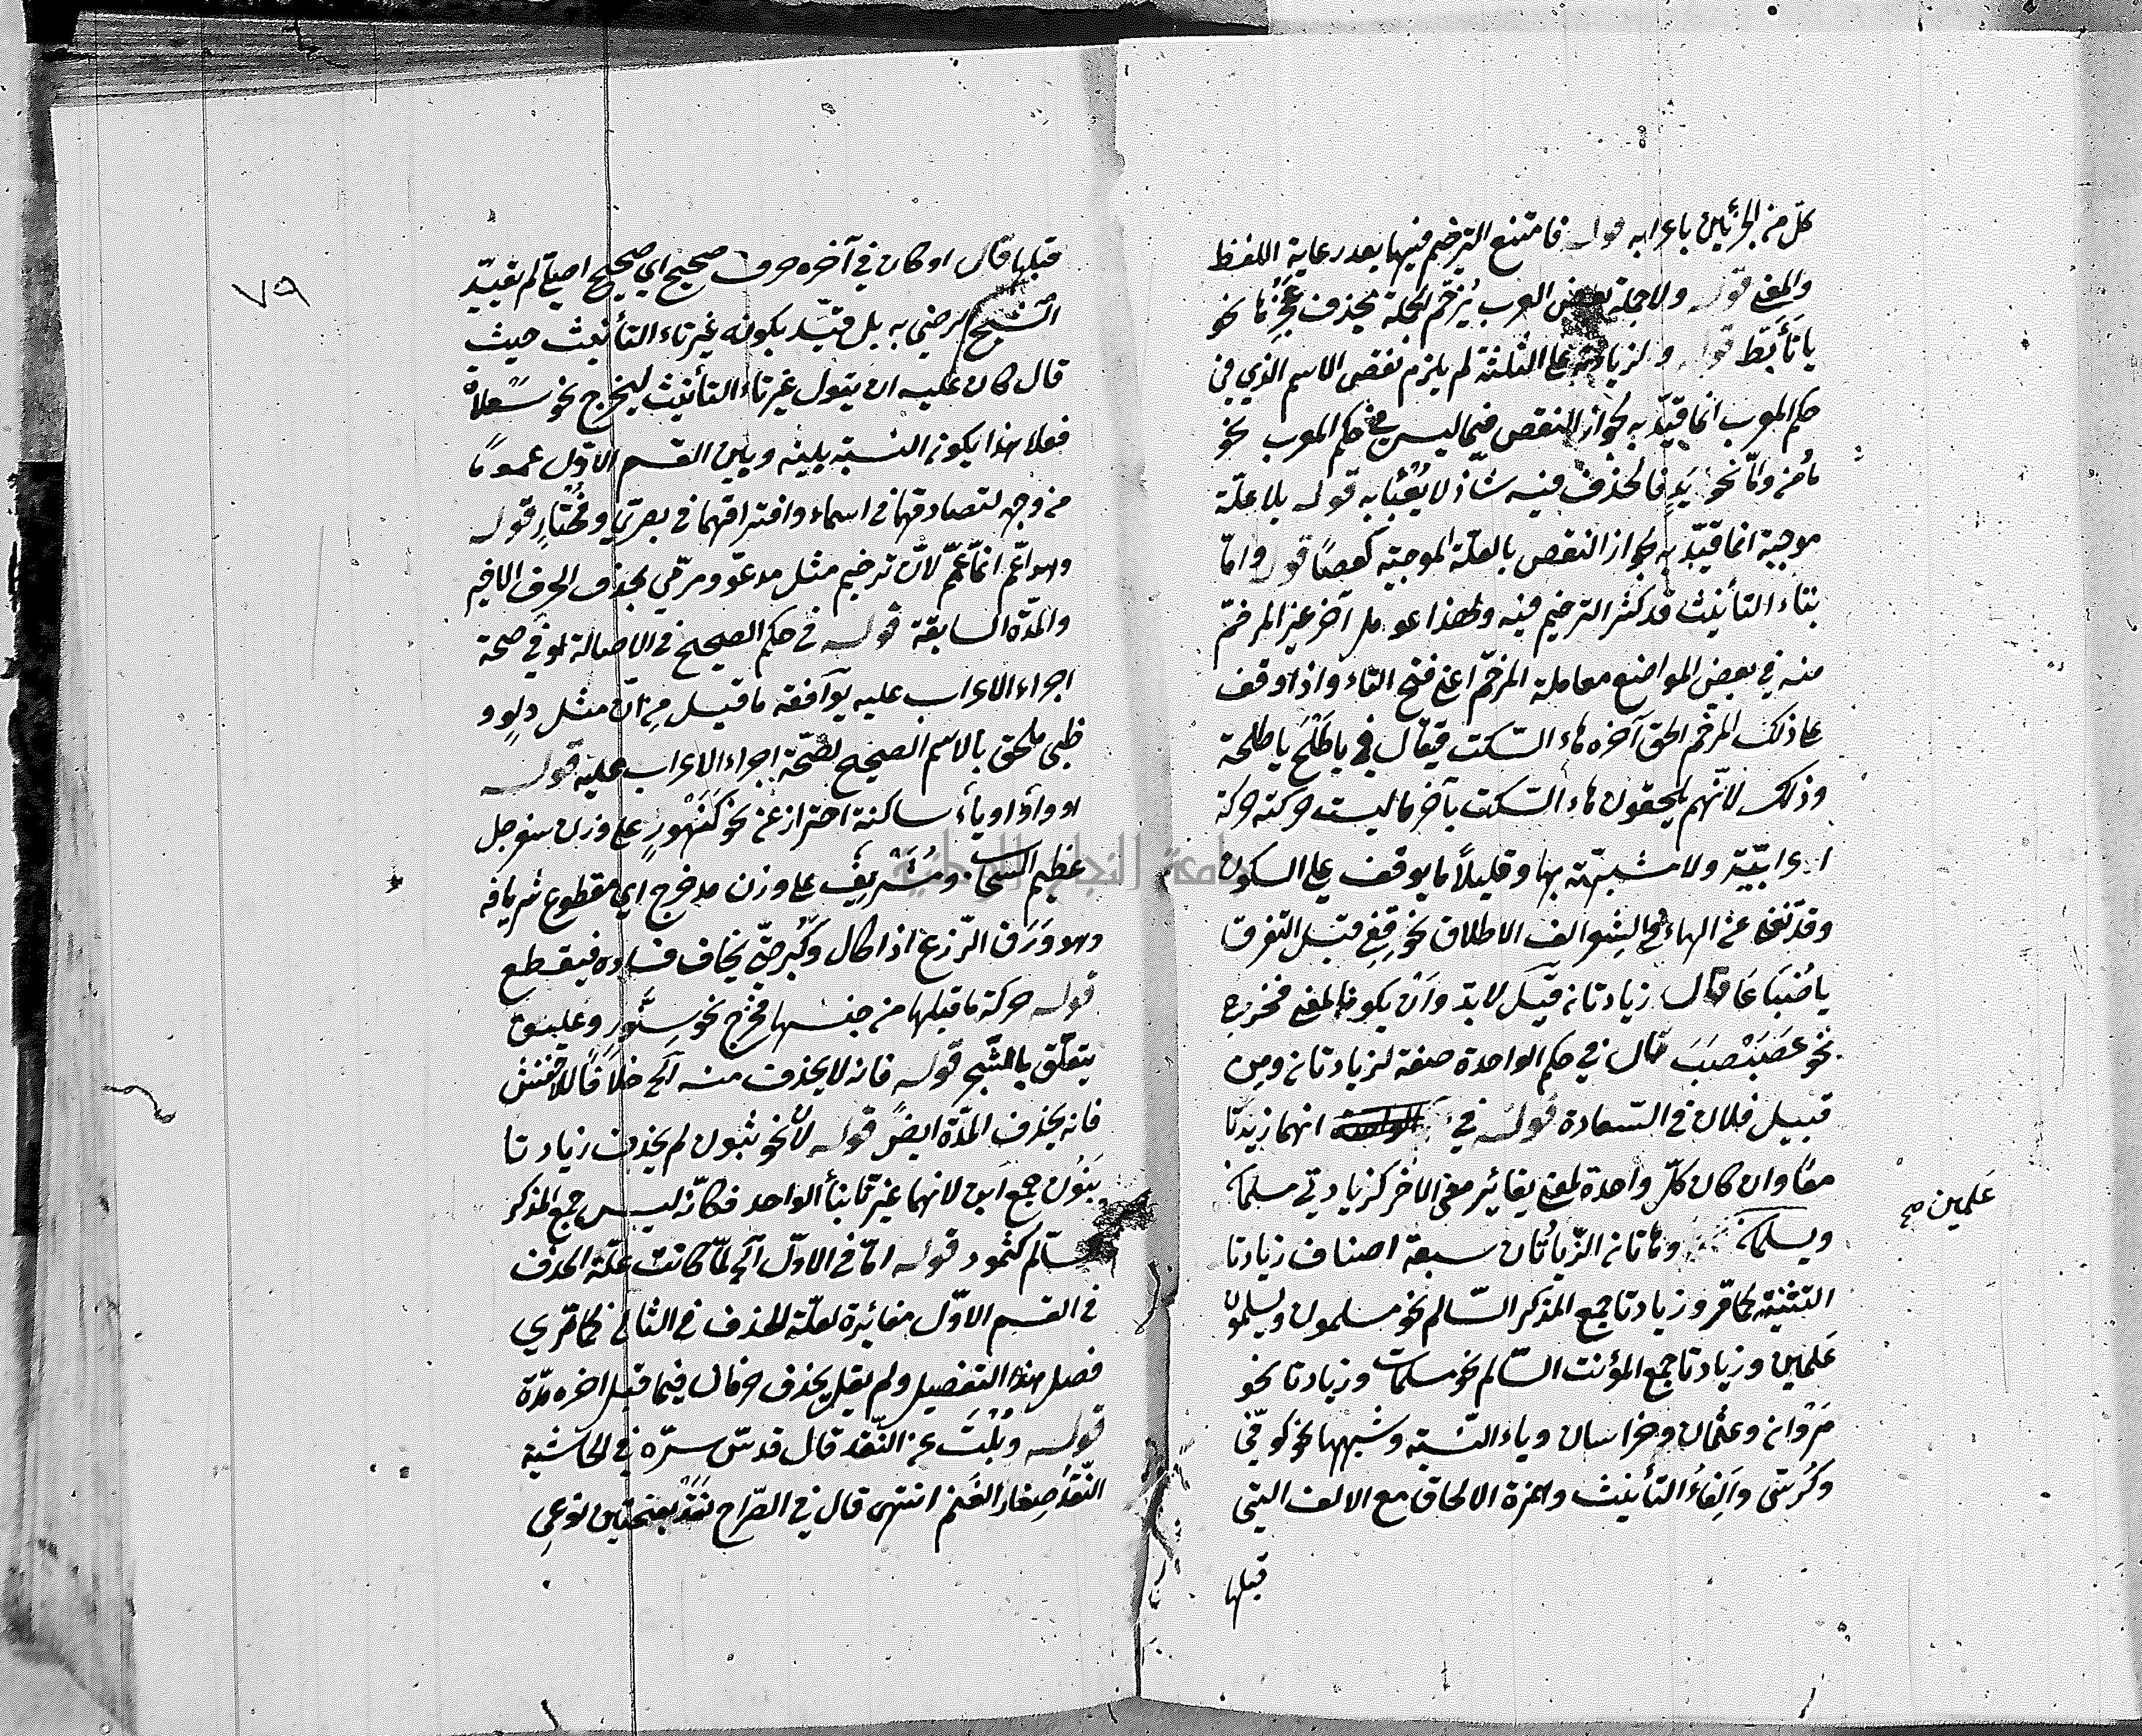 كل من الجزئين باعرابه قوله فامتنع الترخيم فيهما بعد رعاية اللفظ
والمعنى قوله ولا جملة بعض العرب يُرخّم الجملة بحذف عجزها نحو
يا تأبّط قوله ولزيادته على الثلثة لم يلزم نقص الاسم الذي في
حكم المعرب انما قيّد به لجواز النقص فيما ليس في حكم المعرب نحو
ما ومن وامّا نحو يَدٍ فالحذف فيه شاذ لا يُعْبَأ به قوله بلا علّة
موجبة انما قيّد به لجواز النقص بالعلّة الموجبة كعصًا قوله وامّا
بتاء التأنيث قد كثر الترخيم فيه ولهذا عومل آخر غير المرخّم
منه في بعض المواضع معاملة المرخّم اعني فتح التاء واذا وقف
على ذلك المرخّم الحق آخره هاء السّكت فيقال في يا طَلْحَ يا طلحة
وذلك لانّهم يلحقون هاء السّكت بآخر ما ليست حركته حركة
اعرابيّة ولا مشبّهة بها وقليلاً ما يوقف على السكون
وقد تغني عن الهاء في الشعر الف الاطلاق نحو قِفي قبل التفرق
يا ضُبَاعَا قال زيادتان قيل لا بدّ وأنْ يكونا لمعنى فخرج
نحو عَصَبْصَبَ قال في حكم الواحدة صفة لزيادتان ومن
قبيل فلان في السّعادة قوله في انهما زيدتا
معًا وان كان كلّ واحدة لمعنى يغائر معنى الآخر كزيادتي مسلمان
ويسلمان وهاتان الزّيادتان سبعة اصناف زيادتا
التثنية كما مرّ وزيادتا جمع المذكر السّالم نحو مسلمون ويسلمون
عَلمين وزيادتا جمع المؤنث السّالم نحو مسلمات وزيادتا نحو
مَرْوان وعثمان وخراسان وياء النّسبة وشبهها نحو كوفيّ
وكُرسيّ وألِفاءُ التأنيث وهمزة الالحاق مع الالف التي
قبلها
علمين صح
٧٩
قبلها قال او كان في آخره حرف صحيح اي صحيح اصليّ لم يقيّد
الشيخ الرضي به بل قيّد بكونه غير تاء التأنيث حيث
قال كان عليه ان يقول غير تاء التأنيث ليخرج نحو سَعْلاة
فعلى هذا يكون النسبة بينه وبين القسم الاوّل عمومًا
من وجه لتصادقهما في اسماء وافتراقهما في بصريّ ومُخْتارٍ قوله
وهو اعمّ انما عمّ لانّ ترخيم مثل مدعوّ ومرميّ بحذف الحرف الاخير
والمدّة السابقة قوله في حكم الصحيح في الاصالة لا في صحة
اجراء الاعراب عليه يوافقه ما قيل من انّ مثل دلوٍ و
ظبي ملحق بالاسم الصحيح لصحّة اجراء الاعراب عليه قوله
او واوًا وياءً ساكنة احتراز عن نحو كَنَهْوَرٍ على وزن سفرجل
عظيم السحاب ومُشَرْيَفٍ على وزن مدحرج اي مقطوع شريافه
وهو وَرَق الزّرع اذا طال وكَبُر حتّى يخاف فساده فيقطع
قوله حركة ما قبلها من جنسها فخرج نحو سِنَّوْرٍ وعُليق
يتعلّق بالشّجر قوله فانه لا يحذف منه آلخ خلافًا للاخفش
فانه يحذف المدّة ايضًا قوله لانّ نحو ثبون لم يحذف زيادتا
بَنُون جمع ابن لانهما غيّرتا بناء الواحد فكانّه ليس جمع المذكر
السّالم كثمود قوله امّا في الاوّل آلخ لمّا كانت علّة الحذف
في القسم الاوّل مغائرة لعلّة الحذف في الثاني كما ترى
فصل هذا التفصيل ولم يقل يحذف حرفان فيما قبل آخره مدّة
قوله وبُلْتَ عن النّقد قال قدس سرّه في الحاشية
النّقَدُ صغار الغنم انتهى قال في الصّراح نَقَد بفتحتين نوعي